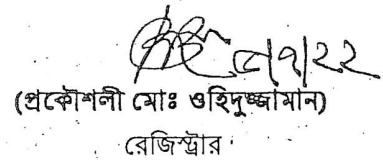 (প্রকৌশলী মোঃ ওহিদুজ্জামান)
রেজিস্ট্রার